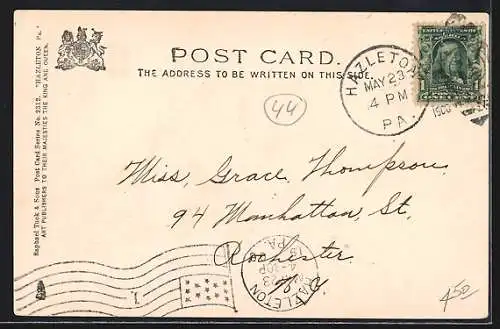 POST CARD.
THE ADDRESS TO BE WRITTEN ON THIS SIDE.
Raphael Tuck & Sons Post Card Series No. 2312. "HAZLETON Pa."
ART PUBLISHERS TO THEIR MAJESTIES THE KING AND QUEEN.
HAZLETON
MAY 23
4 PM
PA.
1
44
Miss. Grace Thompson.
94 Manhattan, St.
Rochester
N.Y.
HAZLETON
PA.
23
1
4.50